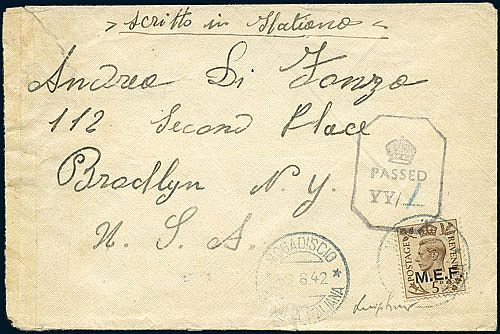 > scritto in Italiano <
Andrea Di Fonzo
112 Second Place
Brooklyn N.Y.
U. S. A.
PASSED
YY/1
MOGADISCIO
6.42
ITALIANA
POSTAGE REVENUE
M.E.F.
5D